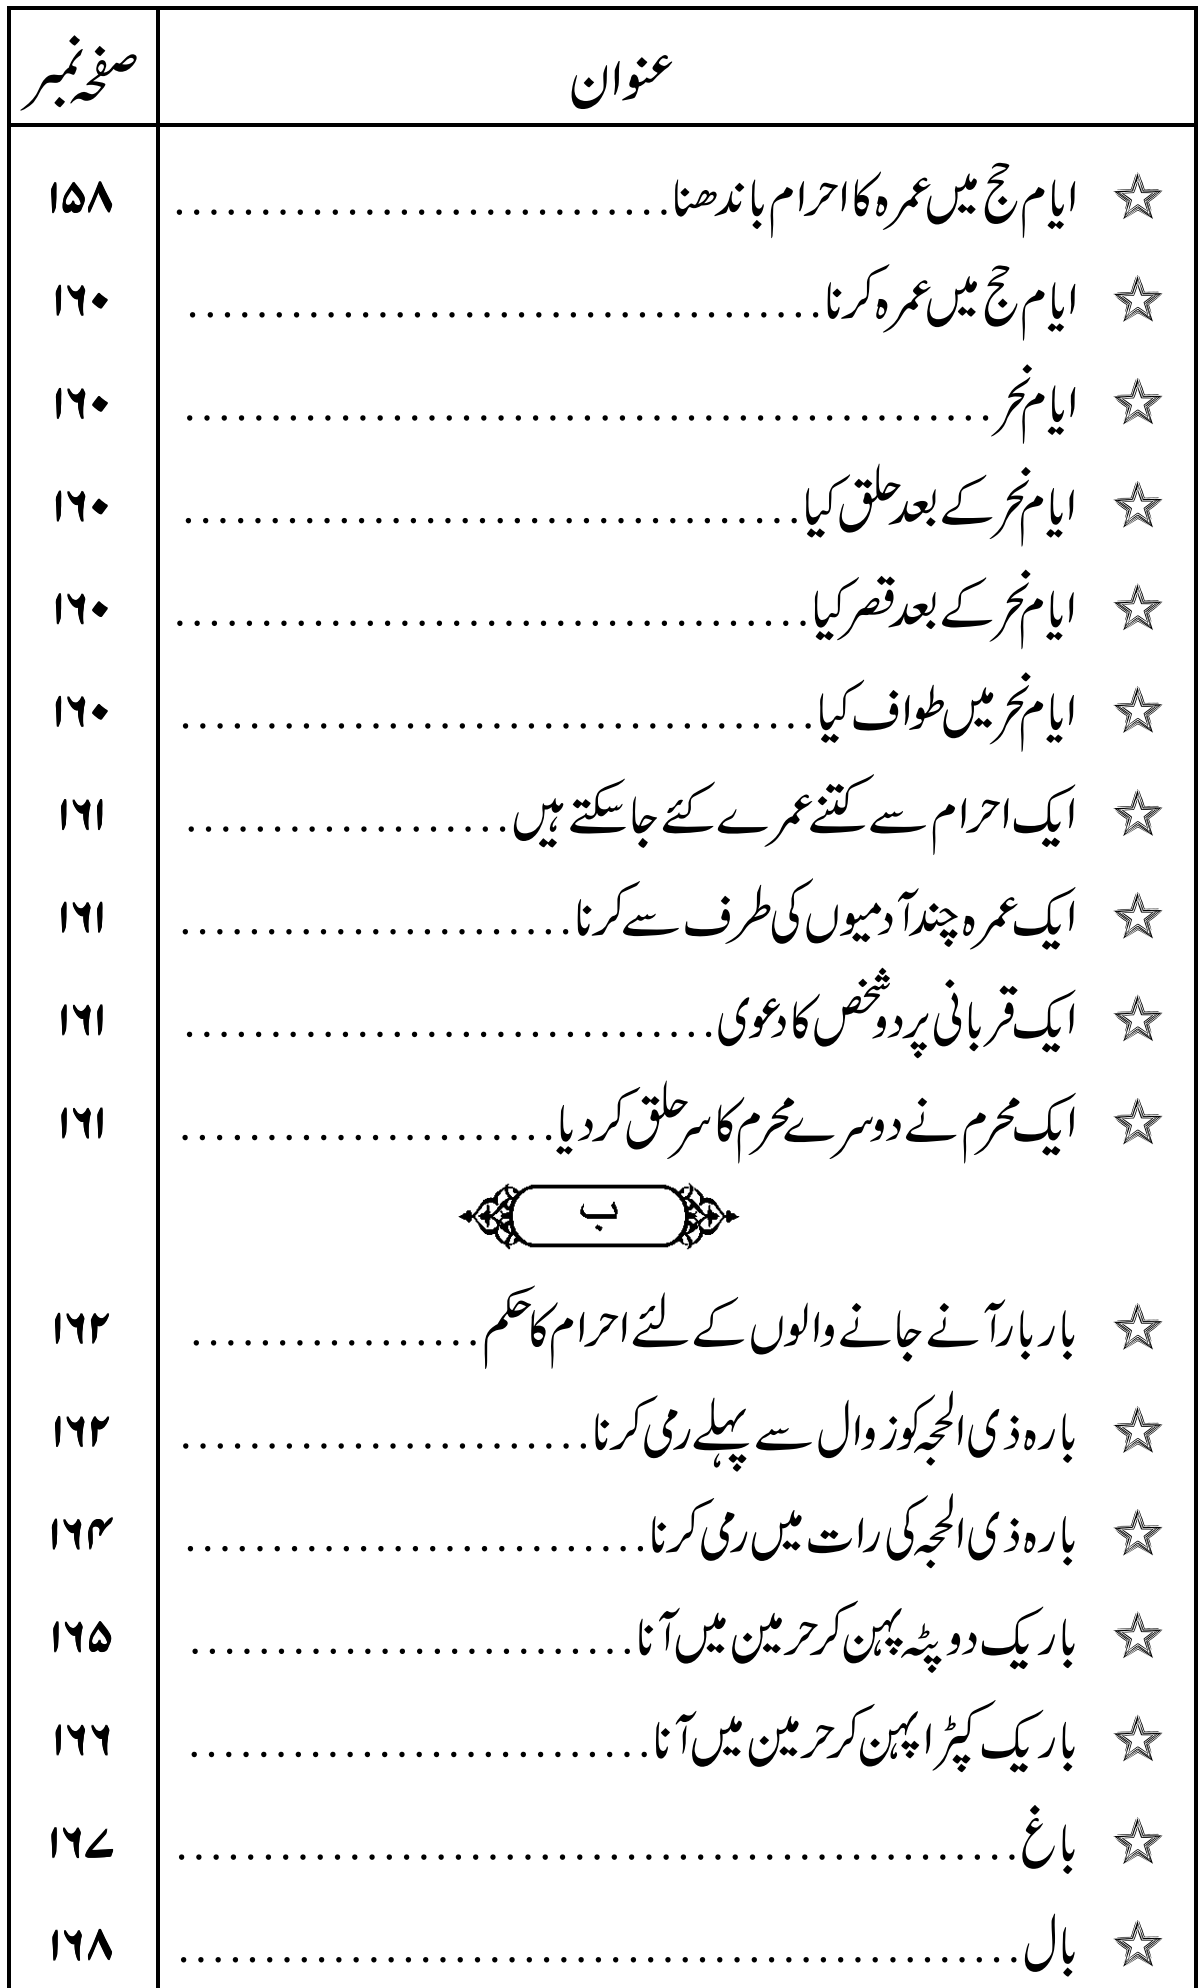 عنوان صفحہ نمبر
☆ ایام حج میں عمرہ کا احرام باندھنا............................. ۱۵۸
☆ ایام حج میں عمرہ کرنا..................................... ۱۶۰
☆ ایام نحر............................................... ۱۶۰
☆ ایام نحر کے بعد حلق کیا.................................... ۱۶۰
☆ ایام نحر کے بعد قصر کیا..................................... ۱۶۰
☆ ایام نحر میں طواف کیا..................................... ۱۶۰
☆ ایک احرام سے کتنے عمرے کئے جاسکتے ہیں................... ۱۶۱
☆ ایک عمرہ چند آدمیوں کی طرف سے کرنا....................... ۱۶۱
☆ ایک قربانی پر دو شخص کا دعوی............................... ۱۶۱
☆ ایک محرم نے دوسرے محرم کا سر حلق کردیا...................... ۱۶۱
ب
☆ بار بار آنے جانے والوں کے لئے احرام کا حکم................. ۱۶۲
☆ بارہ ذی الحجہ کو زوال سے پہلے رمی کرنا........................ ۱۶۲
☆ بارہ ذی الحجہ کی رات میں رمی کرنا........................... ۱۶۴
☆ باریک دوپٹہ پہن کر حرمین میں آنا.......................... ۱۶۵
☆ باریک کپڑا پہن کر حرمین میں آنا........................... ۱۶۶
☆ باغ................................................. ۱۶۷
☆ بال................................................. ۱۶۸